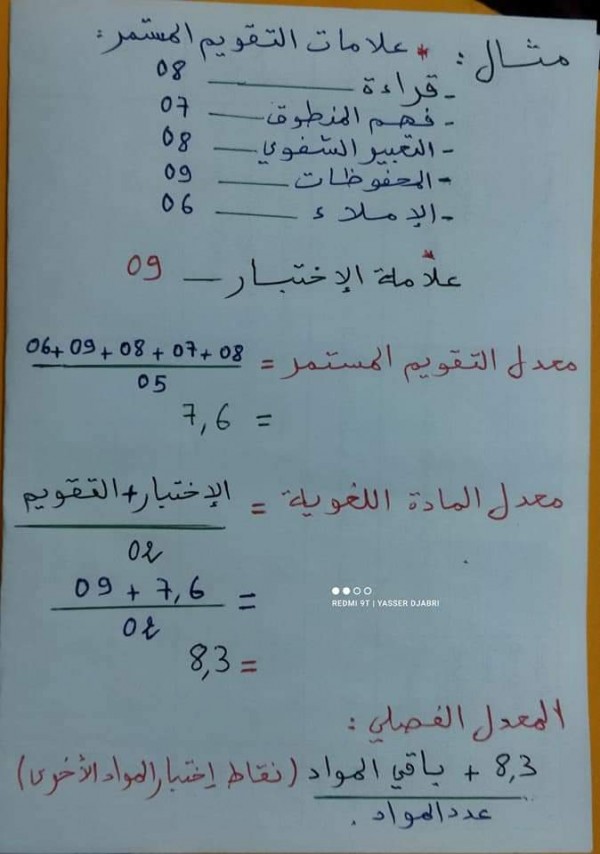 مثال : * علامات التقويم المستمر :
- قراءة ــــــ 08
- فهم المنطوق ــــــ 07
- التعبير الشفوي ــــــ 08
- المحفوظات ــــــ 09
- الإملاء ــــــ 06
* علامة الإختبار ــــــ 09
معدل التقويم المستمر = 06+09+08+07+08
05
= 7,6
معدل المادة اللغوية = الإختبار + التقويم
02
= 09 + 7,6
02
= 8,3
REDMI 9T | YASSER DJABRI
المعدل الفصلي :
8,3 + باقي المواد (نقاط إختبار المواد الأخرى)
عدد المواد .